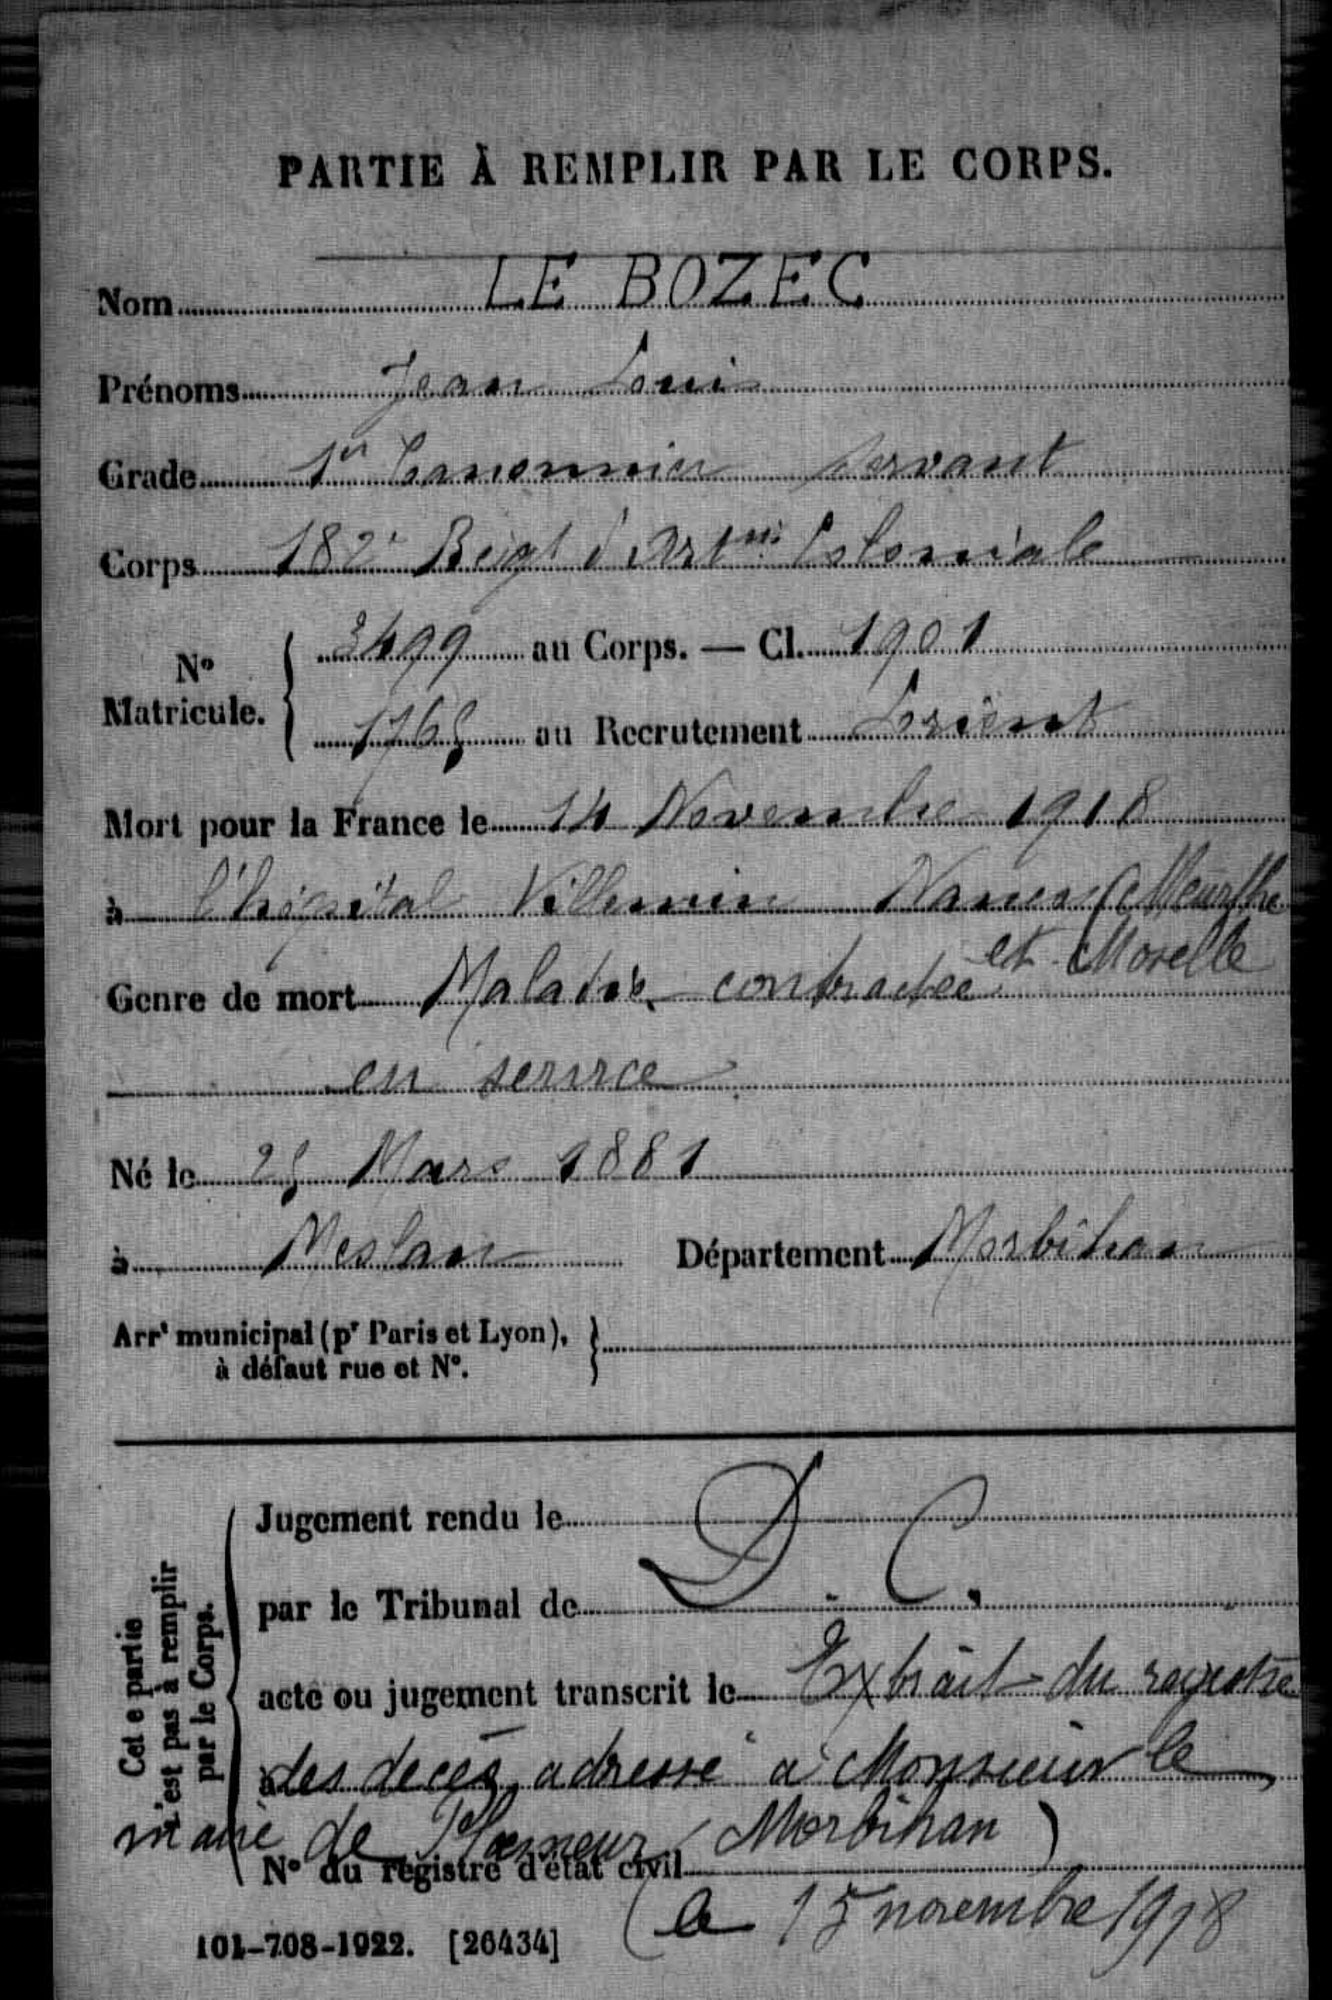 PARTIE À REMPLIR PAR LE CORPS.
Nom LE BOZEC
Prénoms Jean Louis
Grade 1er Canonnier servant
Corps 182e Regt d'Artie Coloniale
No Matricule. { 3499 au Corps. — Cl. 1901
1765 au Recrutement Lorient
Mort pour la France le 14 Novembre 1918
à l'hôpital Villemin Nancy (Meurthe
et Moselle
Genre de mort Maladie contractée
en service
Né le 25 Mars 1881
à Meslan Département Morbihan
Arrt municipal (pr Paris et Lyon), }
à défaut rue et No.
Cette partie
n'est pas à remplir
par le Corps.
Jugement rendu le
D. C.
par le Tribunal de
acte ou jugement transcrit le Extrait du registre
des décès adressé à Monsieur le
maire de Ploemeur (Morbihan)
No du registre d'état civil
(le 15 novembre 1918
101-708-1922. [26434]